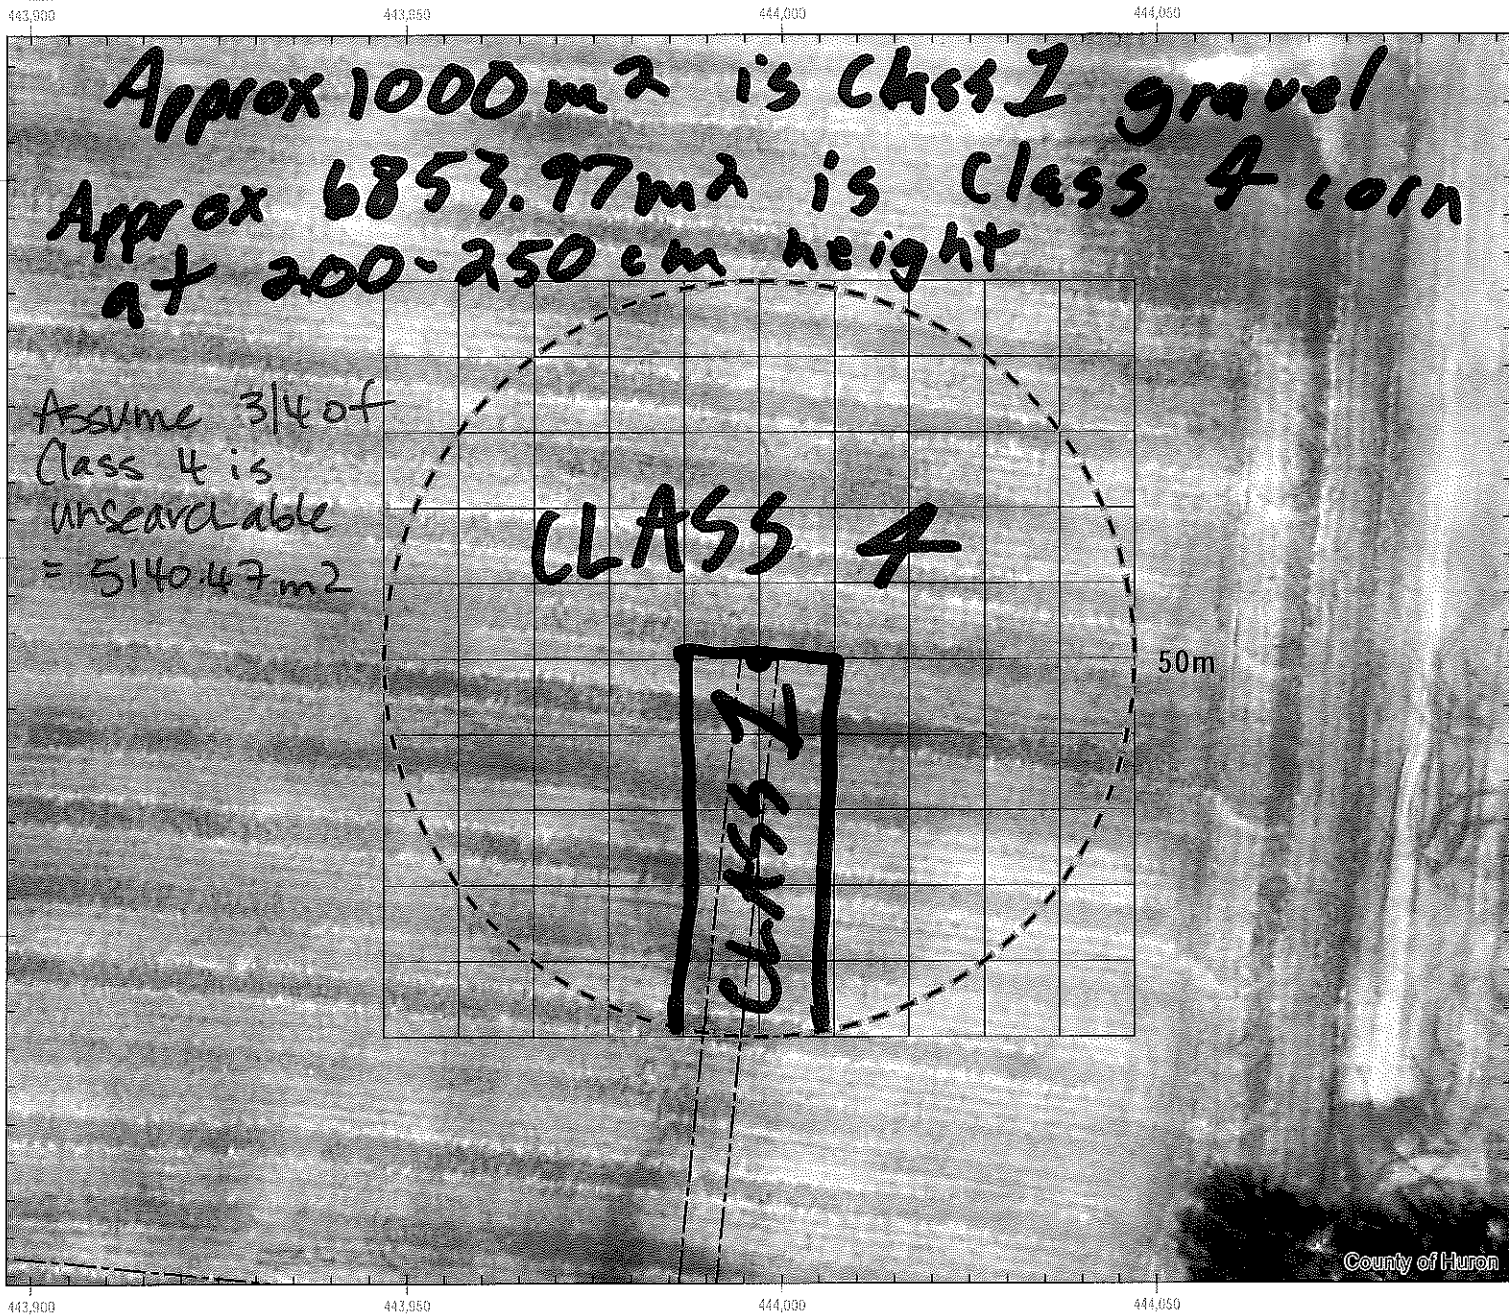 443,900 443,950 444,000 444,050
Approx 1000 m2 is Class 1 gravel
Approx 6853.97m2 is Class 4 corn
at 200-250 cm height
Assume 3/4 of
Class 4 is
unsearchable
= 5140.47 m2
CLASS 4
50m
CLASS 1
County of Huron
443,900 443,950 444,000 444,050